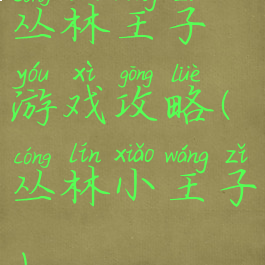 丛林王子
yóu xì gōng lüè
游戏攻略(
cóng lín xiǎo wáng zǐ
丛林小王子